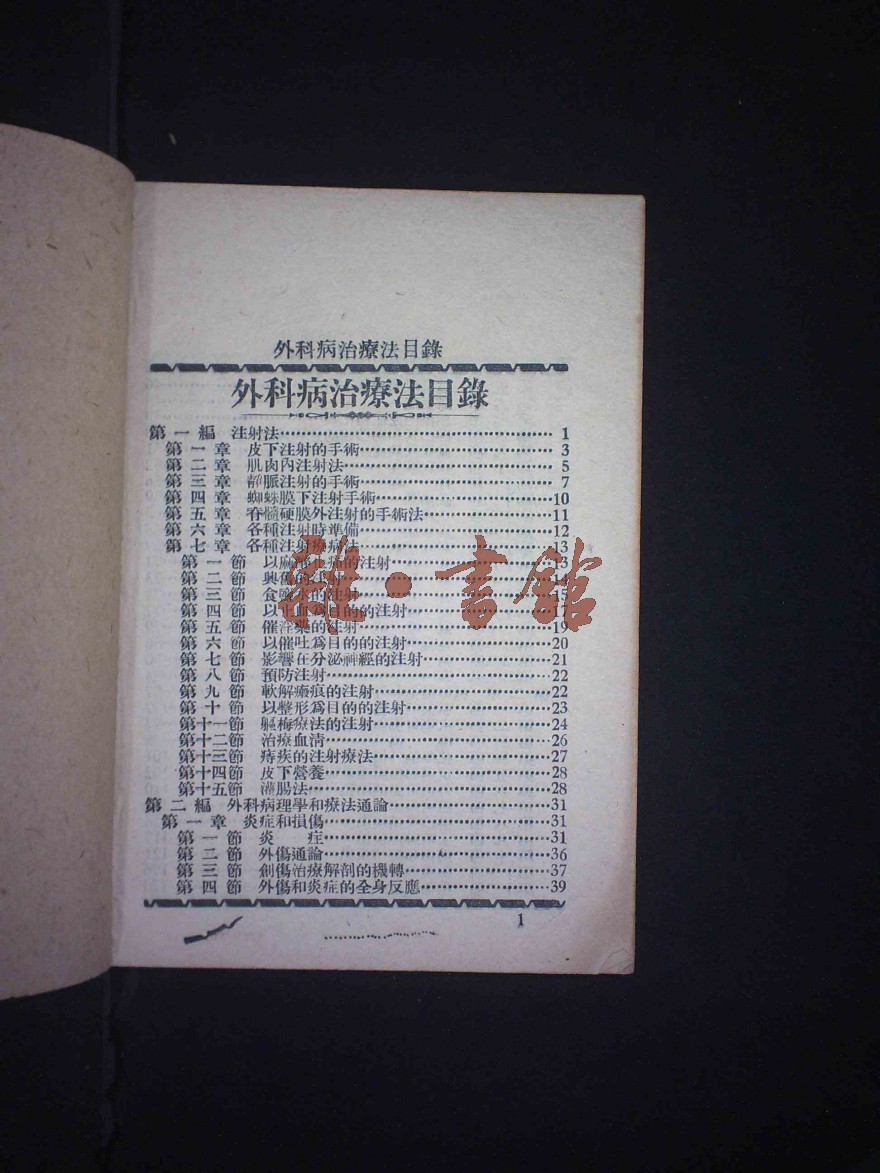 外科病治療法目錄
外科病治療法目錄
第一編 注射法 1
第一章 皮下注射的手術 3
第二章 肌肉內注射法 5
第三章 靜脈注射的手術 7
第四章 蜘蛛膜下注射手術 10
第五章 脊髓硬膜外注射的手術法 11
第六章 各種注射時準備 12
第七章 各種注射療病法 13
第一節 以麻醉止痛的注射 13
第二節 興奮的注射
第三節 食鹽水的注射 15
第四節 以止血爲目的的注射 17
第五節 催淫藥的注射 19
第六節 以催吐爲目的的注射 20
第七節 影響在分泌神經的注射 21
第八節 預防注射 22
第九節 軟解瘢痕的注射 22
第十節 以整形爲目的的注射 23
第十一節 驅梅療法的注射 24
第十二節 治療血清 26
第十三節 痔疾的注射療法 27
第十四節 皮下營養 28
第十五節 灌腸法 28
第二編 外科病理學和療法通論 31
第一章 炎症和損傷 31
第一節 炎症 31
第二節 外傷通論 36
第三節 創傷治療解剖的機轉 37
第四節 外傷和炎症的全身反應 39
1
雜·書館